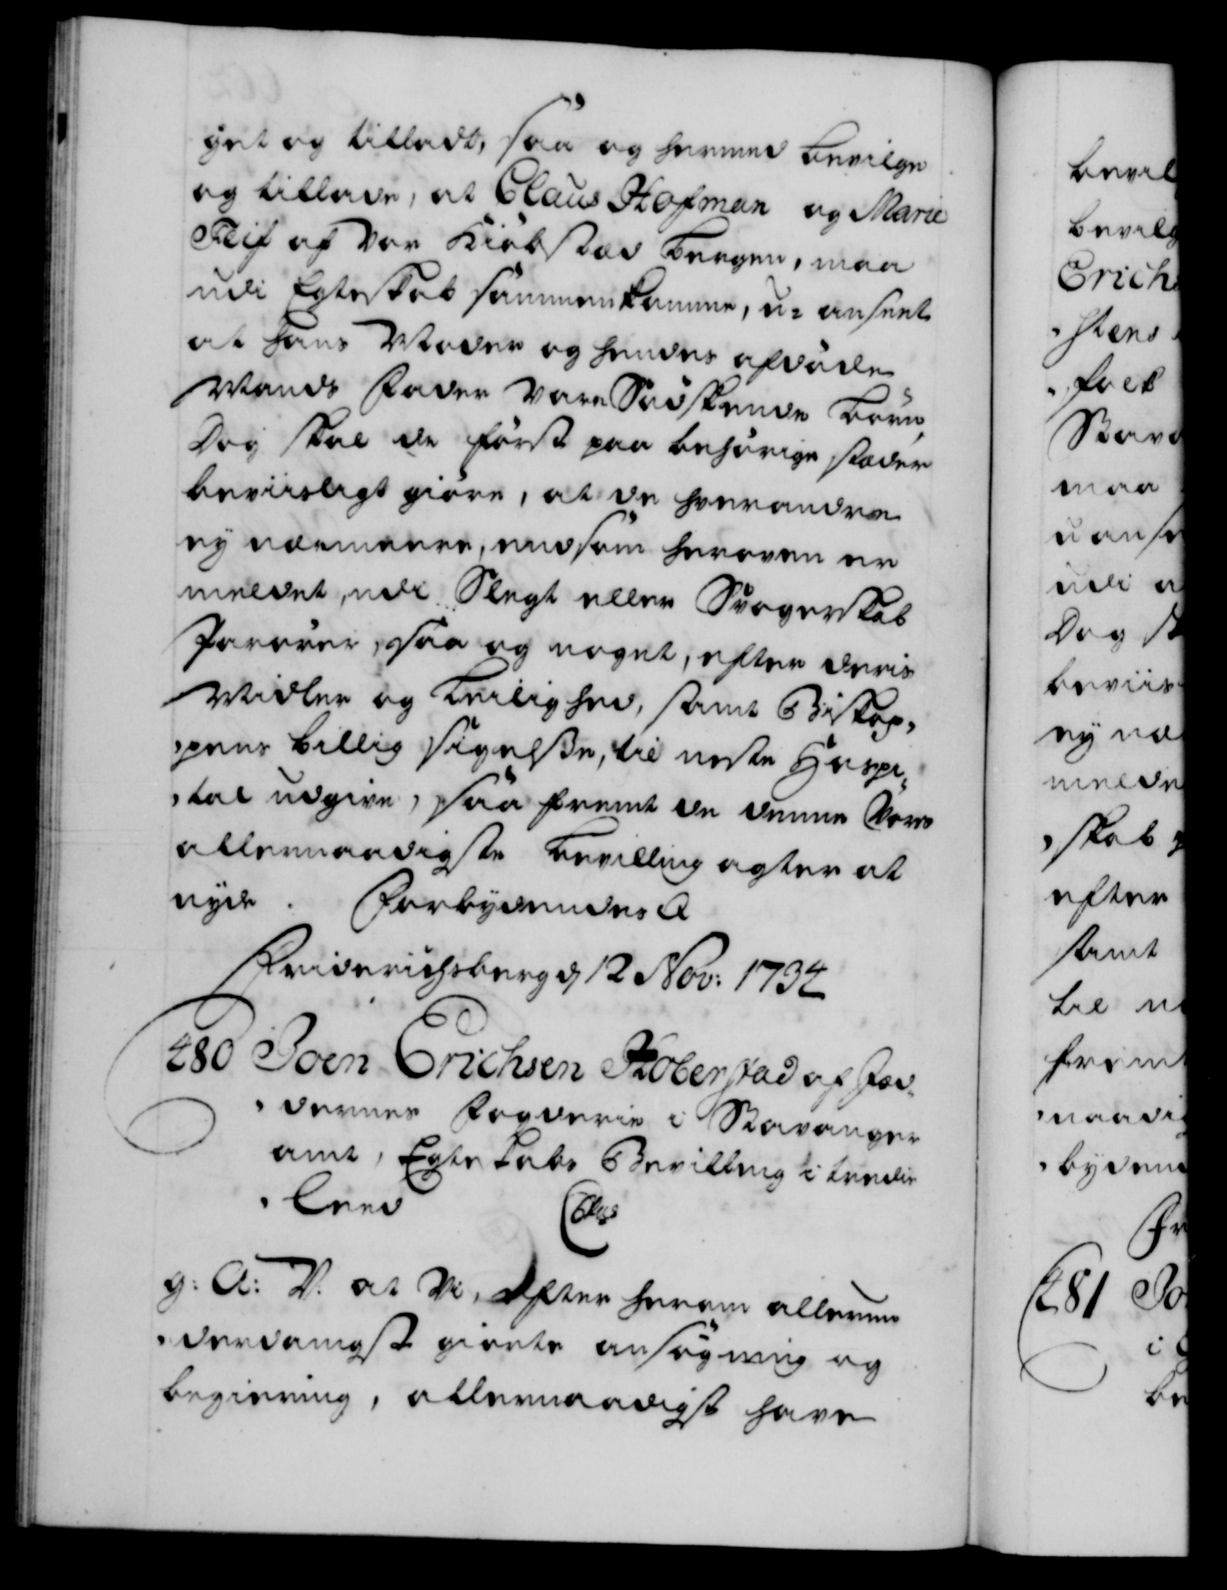 get og tilladt, saa og hermed bevilge
og tillade, at Claus Hofman og Marie
af Vor Kiøbstæd Bergen, maa
udi Egteskab sammenkomme, u-anseet
at hans Moder og hendes afdøde
Mands Fader vare Sødskende Børn,
Dog skal de først paa behørige stæder
beviisligt giøre, at de hverandre
ey nærmere, end som heroven er
meldet, udi Slegt eller Svogerskab
paarører, saa og noget, efter deris
Midler og Leilighed, samt Biskop-
-pens billig sigelse, til neste Hospi-
-tal udgive, saa fremt de denne Vores
allernaadigste Bevilling agter at
nyde. Forbydendes
Friderichsberg d 12 Nov: 1734
480 Joen Erichsen Koberstad af Jæd-
-dernes Fogderie i Stavanger
amt, Egteskabs Bevilling i tredie
-Leed
g: A: V. at Vi, Efter herom allerun-
-derdanigst giorte ansøgning og
begiering, allernaadigst have
bevil
bevilg
Erichs
folk
Stava
maa
uanse
udi a
Dog sk
beviis
ey næ
melde
-skab p
efter
samt
til ne
fremt
-naadig
-bydend
Fr
481 Jo
i
be